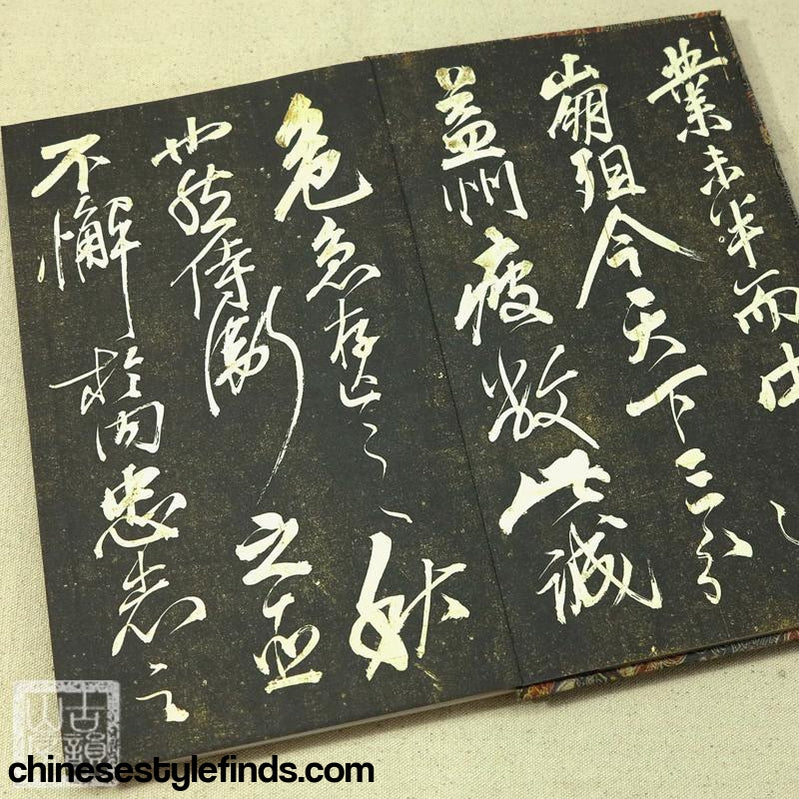 業未半而中
崩殂今天下三分
益州疲敝此誠
危急存亡之秋
也然侍衛之臣
不懈於內忠志之
chinesestylefinds.com